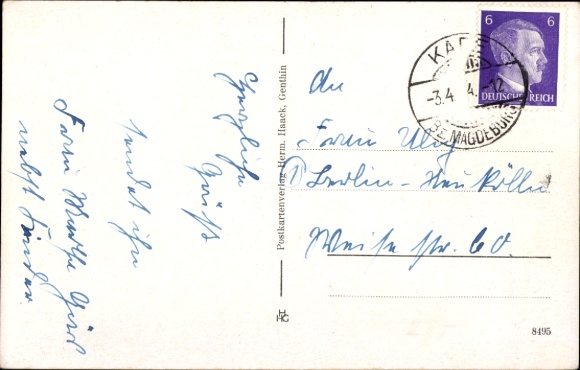 Herzliche
Grüße
sendet ihn
Frau Martha
nebst Kinder.
Postkartenverlag Herm. Haack, Genthin
HHG
6 6
DEUTSCHES REICH
KADE
-3.4. 4 -12
BZ. MAGDEBURG
An
Frau
Berlin-Neukölln
Weise str. 60.
8495